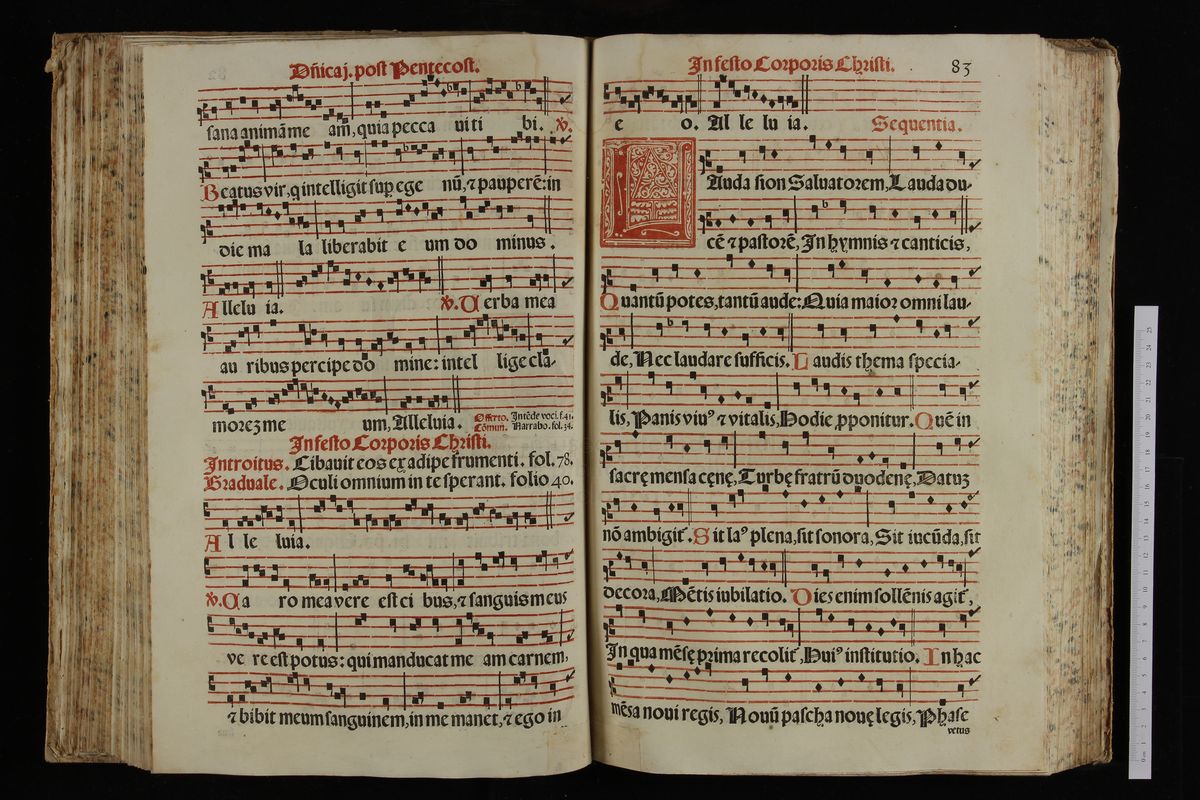 Dñica j. post Pentecost.
sana animã me am, quia pecca ui ti bi. ℣.
Beatus vir, q intelligit sup ege nũ, ⁊ pauperẽ: in
die ma la liberabit e um do minus.
Alle lu ia. ℣. Uerba mea
au ribus percipe do mine: intel lige cla-
morez me um, Alleluia. Offerto. Intẽde voci. f. 41.
Cõmun. Narrabo. fol. 34.
In festo Corporis Christi.
Introitus. Cibauit eos ex adipe frumenti. fol. 78.
Graduale. Oculi omnium in te sperant. folio 40.
Al le luia.
℣. Ca ro mea vere est ci bus, ⁊ sanguis meus
ve re est potus: qui manducat me am carnem,
⁊ bibit meum sanguinem, in me manet, ⁊ ego in
In festo Corporis Christi. 83
e o. Al le lu ia. Sequentia.
LAuda sion Saluatorem, Lauda du-
cẽ ⁊ pastorẽ, In hymnis ⁊ canticis,
Quantũ potes, tantũ aude: Quia maior omni lau-
de, Nec laudare sufficis. Laudis thema specia-
lis, Panis viuꝰ ⁊ vitalis, Hodie ꝓponitur. Quẽ in
sacrę mensa cęnę, Turbę fratrũ duodenę, Datuz
nõ ambigit᷑. Sit laꝰ plena, sit sonora, Sit iucũda, sit
decora, Mẽtis iubilatio. Dies enim sollẽnis agit᷑,
In qua mẽsę prima recolit᷑, Huiꝰ institutio. In hac
mẽsa noui regis, Nouũ pascha nouę legis, Phase
vetus